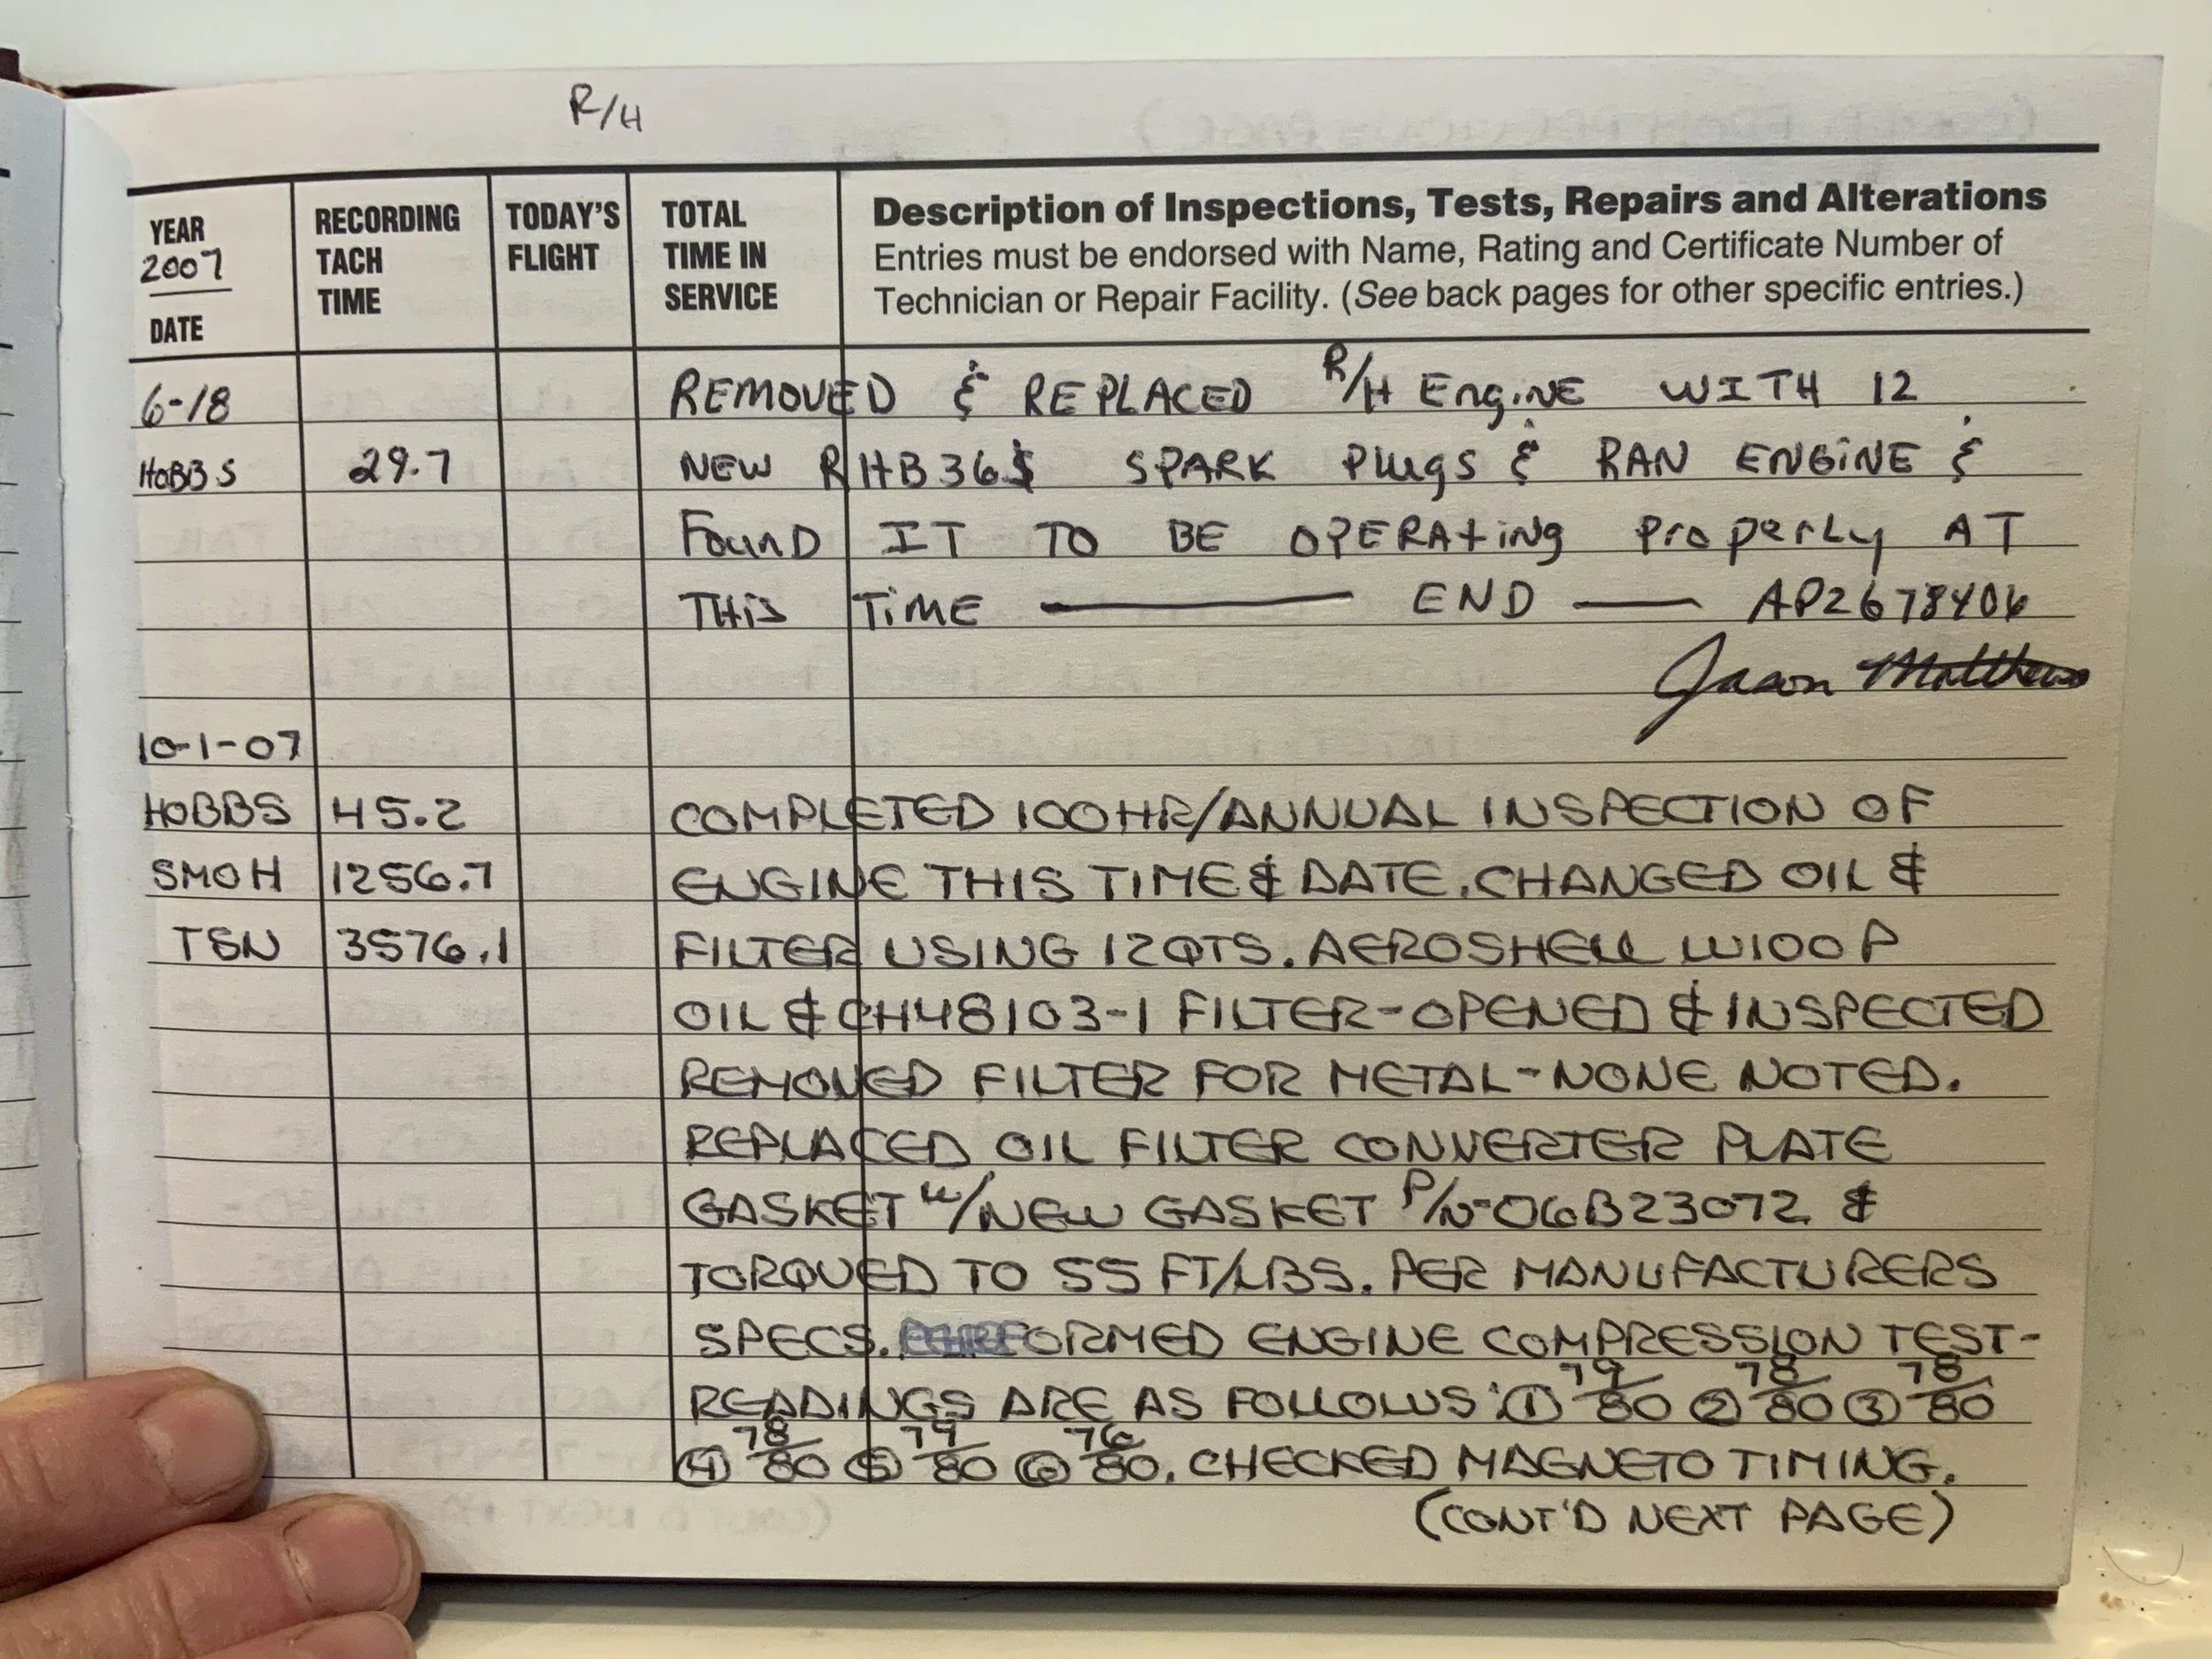 R/H
YEAR 2007 DATE
RECORDING TACH TIME
TODAY'S FLIGHT
TOTAL TIME IN SERVICE
Description of Inspections, Tests, Repairs and Alterations
Entries must be endorsed with Name, Rating and Certificate Number of
Technician or Repair Facility. (See back pages for other specific entries.)
6-18 REMOVED & REPLACED R/H ENgiNE WITH 12
HOBBS 29.7 NEW RHB36S SPARK PlugS & RAN ENGiNE &
FounD IT TO BE OPERAtiNg PropERLy AT
THiS TiME — END — AP2678406
Jason Matthews
10-1-07
HOBBS 45.2 COMPLETED 100HR/ANNUAL INSPECTION OF
SMOH 1256.7 ENGINE THIS TIME & DATE. CHANGED OIL &
TSN 3576.1 FILTER USING 12QTS. AEROSHELL W100P
OIL & CH48103-1 FILTER-OPENED & INSPECTED
REMOVED FILTER FOR METAL-NONE NOTED.
REPLACED OIL FILTER CONVERTER PLATE
GASKET W/NEW GASKET P/N-06B23072 &
TORQUED TO 55 FT/LBS. PER MANUFACTURERS
SPECS. PERFORMED ENGINE COMPRESSION TEST-
READINGS ARE AS FOLLOWS: ① 79/80 ② 78/80 ③ 78/80
④ 78/80 ⑤ /80 ⑥ 76/80. CHECKED MAGNETO TIMING.
(CONT'D NEXT PAGE)